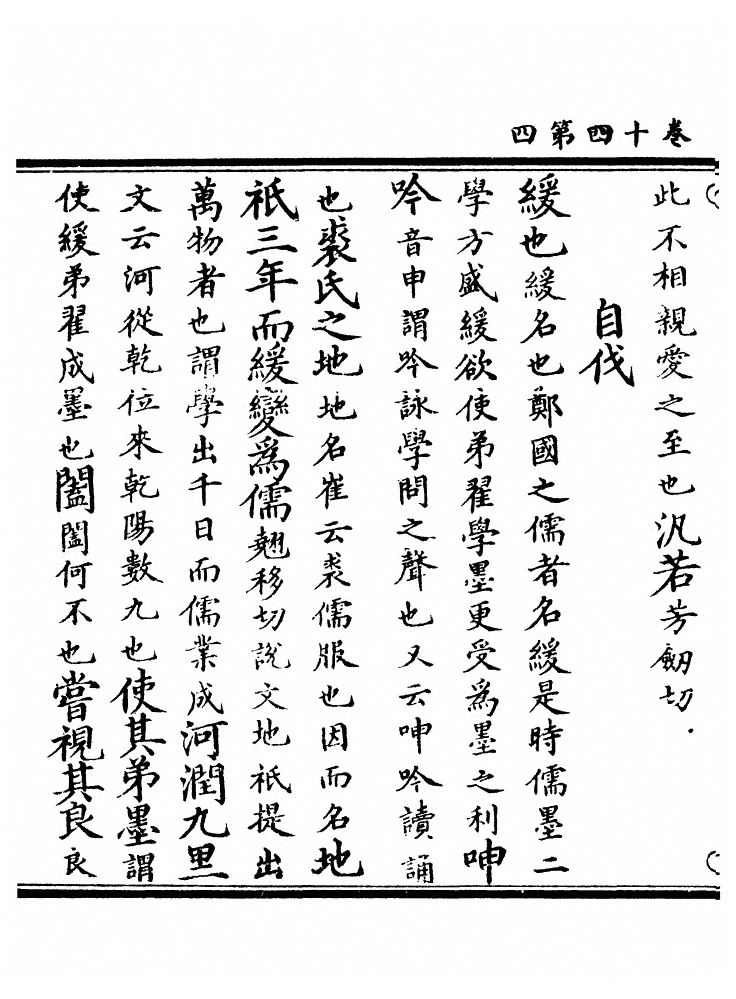 卷十四第四
此不相親愛之至也汎若芳劔切
自伐
緩也緩名也鄭國之儒者名緩是時儒墨二
學方盛緩欲使弟翟學墨更受爲墨之利呻
吟音申謂吟詠學問之聲也又云呻吟讀誦
也裘氏之地地名崔云裘儒服也因而名地
祇三年而緩變爲儒翹移切說文地祇提出
萬物者也謂學出千日而儒業成河潤九里
文云河從乾位來乾陽數九也使其弟墨謂
使緩弟翟成墨也闔闔何不也嘗視其良良